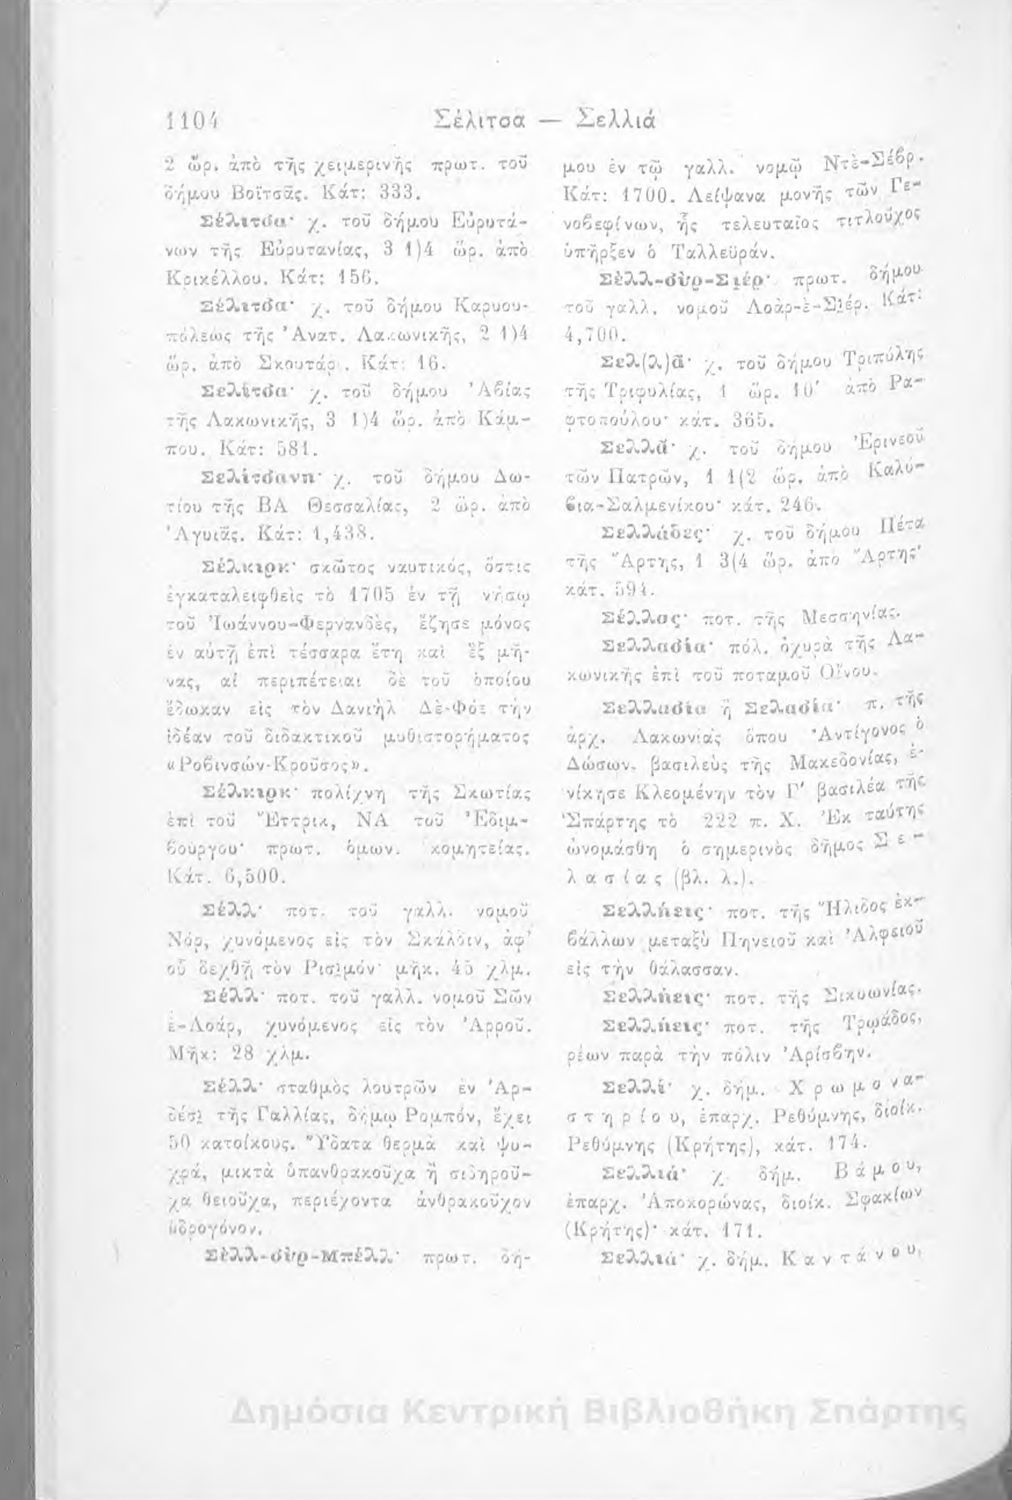 1104
Σέλιτσα — Σελλιά
2 ὥρ. ἀπὸ τῆς χειμερινῆς πρωτ. τοῦ
δήμου Βοϊτσᾶς. Κάτ: 333.
Σέλιτσα· χ. τοῦ δήμου Εὐρυτά-
νων τῆς Εὐρυτανίας, 3 1)4 ὡρ. ἀπὸ
Κρικέλλου. Κάτ: 156.
Σέλιτσα· χ. τοῦ δήμου Καρυου-
πόλεως τῆς Ἀνατ. Λακωνικῆς, 2 1)4
ὡρ. ἀπὸ Σκουτάρι. Κάτ: 16.
Σελίτσα· χ. τοῦ δήμου Ἀβίας
τῆς Λακωνικῆς, 3 1)4 ὥρ. ἀπὸ Κάμ-
που. Κάτ: 581.
Σελίτσανη· χ. τοῦ δήμου Δω-
τίου τῆς ΒΑ Θεσσαλίας, 2 ὥρ. ἀπὸ
Ἀγυιᾶς. Κάτ: 1,438.
Σέλκιρκ· σκῶτος ναυτικός, ὅστις
ἐγκαταλειφθεὶς τὸ 1705 ἐν τῇ νήσῳ
τοῦ Ἰωάννου-Φερνανδὲς, ἔζησε μόνος
ἐν αὐτῇ ἐπὶ τέσσαρα ἔτη καὶ ἓξ μῆ-
νας, αἱ περιπέτειαι δὲ τοῦ ὁποίου
ἔδωκαν εἰς τὸν Δανιὴλ Δὲ-Φόε τὴν
ἰδέαν τοῦ διδακτικοῦ μυθιστορήματος
«Ροβινσών-Κροῦσος».
Σέλκιρκ· πολίχνη τῆς Σκωτίας
ἐπὶ τοῦ Ἔττρικ, ΝΑ τοῦ Ἐδιμ-
βούργου· πρωτ. ὁμων. κομητείας.
Κάτ. 6,500.
Σέλλ· ποτ. τοῦ γαλλ. νομοῦ
Νόρ, χυνόμενος εἰς τὸν Σκάλδιν, ἀφ'
οὗ δεχθῇ τὸν Ρισῒμόν· μῆκ. 45 χλμ.
Σέλλ· ποτ. τοῦ γαλλ. νομοῦ Σῶν
ἐ-Λοάρ, χυνόμενος εἰς τὸν Ἀρροῦ.
Μῆκ: 28 χλμ.
Σέλλ· σταθμὸς λουτρῶν ἐν Ἀρ-
δέσῒ τῆς Γαλλίας, δήμῳ Ρομπόν, ἔχει
50 κατοίκους. Ὕδατα θερμὰ καὶ ψυ-
χρά, μικτὰ ὑπανθρακοῦχα ἢ σιδηροῦ-
χα θειοῦχα, περιέχοντα ἀνθρακοῦχον
ὑδρογόνον.
Σὲλλ-σὺρ-Μπέλλ· πρωτ. δή-
μου ἐν τῷ γαλλ. νομῷ Ντὲ-Σέβρ.
Κάτ: 1700. Λείψανα μονῆς τῶν Γε-
νοβεφίνων, ἧς τελευταῖος τιτλοῦχος
ὑπῆρξεν ὁ Ταλλεϋράν.
Σὲλλ-σὺρ-Σιέρ· πρωτ. δήμου
τοῦ γαλλ. νομοῦ Λοὰρ-ὲ-Σῒέρ. Κάτ:
4,700.
Σελ(λ)ᾶ· χ. τοῦ δήμου Τριπύλης
τῆς Τριφυλίας, 1 ὥρ. 10' ἀπὸ Ρα-
φτοπούλου· κάτ. 365.
Σελλᾶ· χ. τοῦ δήμου Ἐρινεοῦ
τῶν Πατρῶν, 1 1(2 ὥρ. ἀπὸ Καλύ-
βια-Σαλμενίκου· κάτ. 246.
Σελλάδες· χ. τοῦ δήμου Πέτα
τῆς Ἄρτης, 1 3(4 ὥρ. ἀπὸ Ἄρτης·
κάτ. 594.
Σέλλας· ποτ. τῆς Μεσσηνίας.
Σελλασία· πόλ. ὀχυρὰ τῆς Λα-
κωνικῆς ἐπὶ τοῦ ποταμοῦ Οἴνου.
Σελλασία ἢ Σελασία· π. τῆς
ἀρχ. Λακωνίας ὅπου Ἀντίγονος ὁ
Δώσων, βασιλεὺς τῆς Μακεδονίας, ἐ-
νίκησε Κλεομένην τὸν Γ' βασιλέα τῆς
Σπάρτης τὸ 222 π. Χ. Ἐκ ταύτης
ὠνομάσθη ὁ σημερινὸς δῆμος Σ ε -
λ α σ ί α ς (βλ. λ.).
Σελλήεις· ποτ. τῆς Ἤλιδος ἐκ-
βάλλων μεταξὺ Πηνειοῦ καὶ Ἀλφειοῦ
εἰς τὴν θάλασσαν.
Σελλήεις· ποτ. τῆς Σικυωνίας.
Σελλήεις· ποτ. τῆς Τρῳάδος,
ρέων παρὰ τὴν πόλιν Ἀρίσβην.
Σελλί· χ. δήμ. Χ ρ ω μ ο ν α-
σ τ η ρ ί ο υ, ἐπαρχ. Ρεθύμνης, διοίκ.
Ρεθύμνης (Κρήτης), κάτ. 174.
Σελλιά· χ. δήμ. Β ά μ ο υ,
ἐπαρχ. Ἀποκορώνας, διοίκ. Σφακίων
(Κρήτης)· κάτ. 171.
Σελλιά· χ. δήμ. Κ α ν τ ά ν ο υ,
Δημόσια Κεντρική Βιβλιοθήκη Σπάρτης